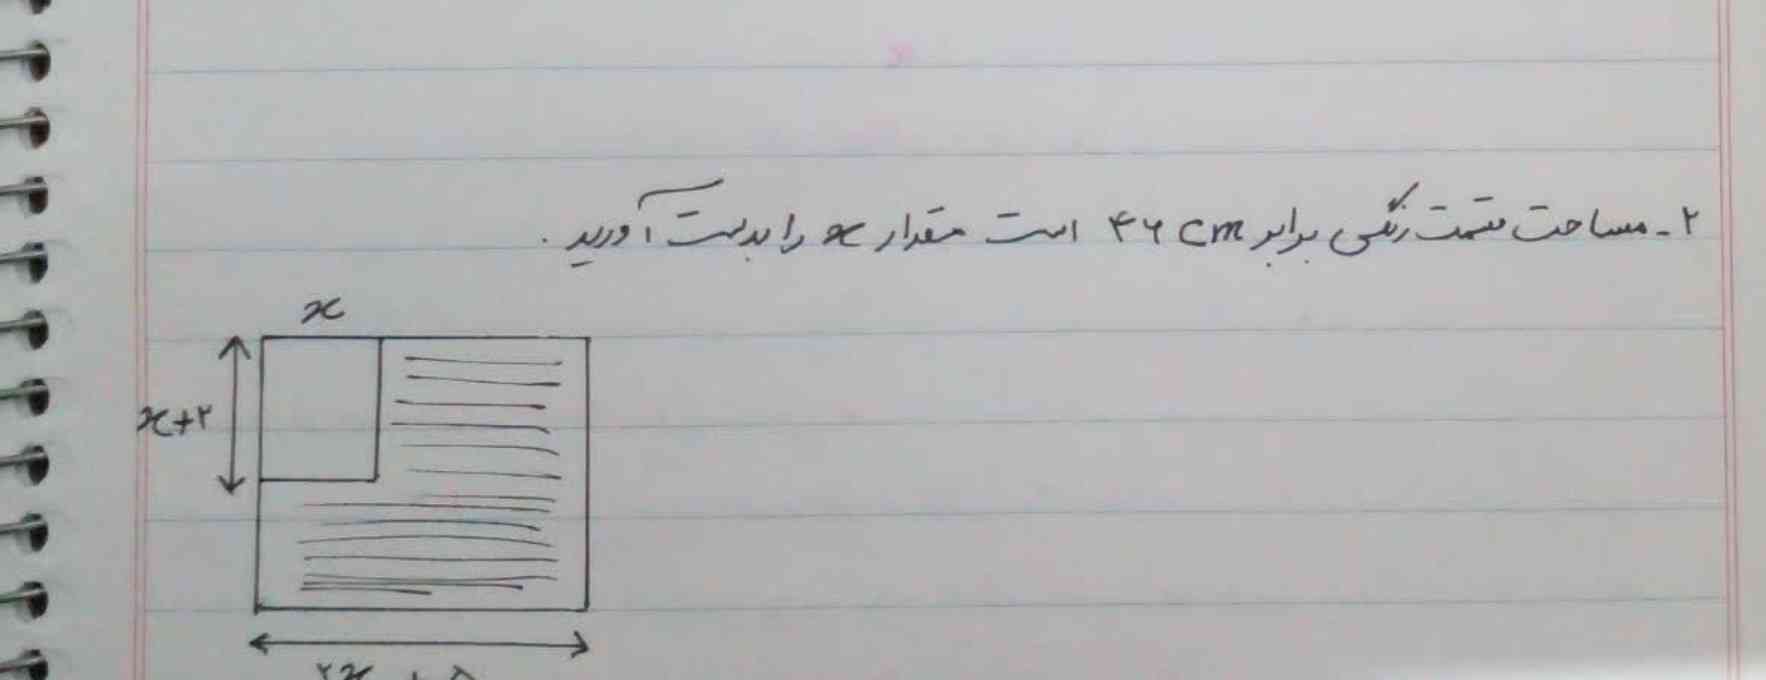 ۲- مساحت قسمت رنگی برابر ۴۶ cm است مقدار x را بدست آورید.
x
x+۲
۲x + ۵